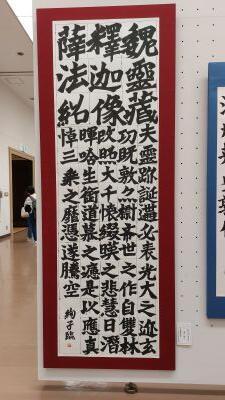 魏靈藏
釋迦像
薛法紹
夫靈跡誕遘必表光大之迹玄
功既敷亦樹希世之作自雙林
改照大千懷綴暎之悲慧日潛
暉唅生銜道慕之是以應真
悼三乘之靡憑遂騰空
絢子臨